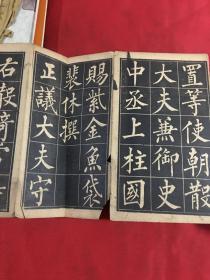 置等使朝散
大夫兼御史
中丞上柱國
賜紫金魚袋
裴休撰
正議大夫守
右散騎